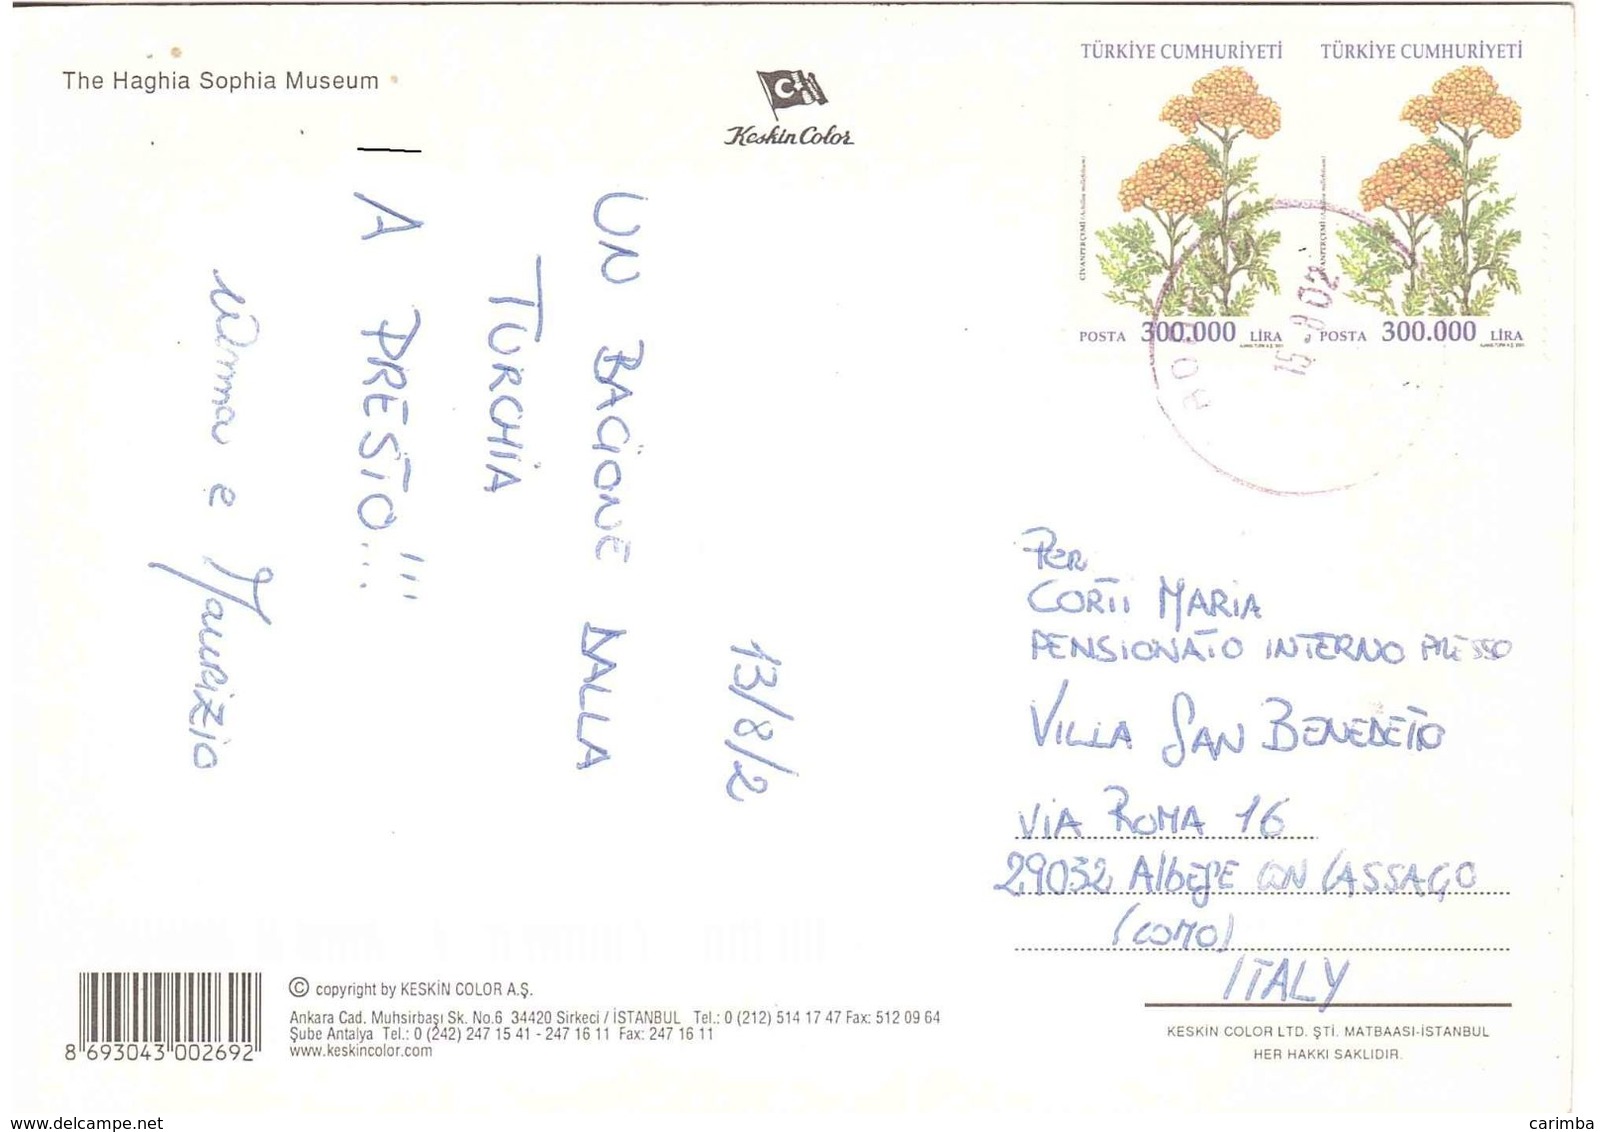 The Haghia Sophia Museum
Keskin Color
TÜRKİYE CUMHURİYETİ
CİVANPERÇEMİ (Achillea millefolium)
POSTA 300.000 LİRA
TÜRKİYE CUMHURİYETİ
POSTA 300.000 LİRA
15.8.02
13/8/2
UN BACIONE DALLA
TURCHIA
A PRESTO...!!!
e Maurizio
PER
CORTI MARIA
PENSIONATO INTERNO PRESSO
VILLA SAN BENEDETO
VIA ROMA 16
29032 AlbESE CON CASSAÇO
(COMO)
ITALY
8 693043 002692
© copyright by KESKİN COLOR A.Ş.
Ankara Cad. Muhsirbaşı Sk. No.6 34420 Sirkeci / İSTANBUL Tel.: 0 (212) 514 17 47 Fax: 512 09 64
Şube Antalya Tel.: 0 (242) 247 15 41 - 247 16 11 Fax: 247 16 11
www.keskincolor.com
KESKİN COLOR LTD. ŞTİ. MATBAASI-İSTANBUL
HER HAKKI SAKLIDIR.
www.delcampe.net
carimba